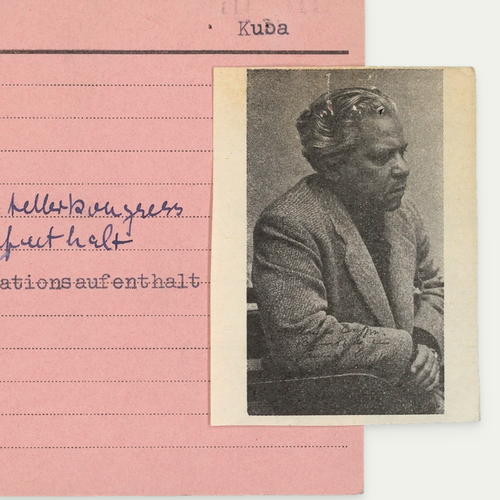 Kuba
tellerkongress
fenthalt
ationsaufenthalt